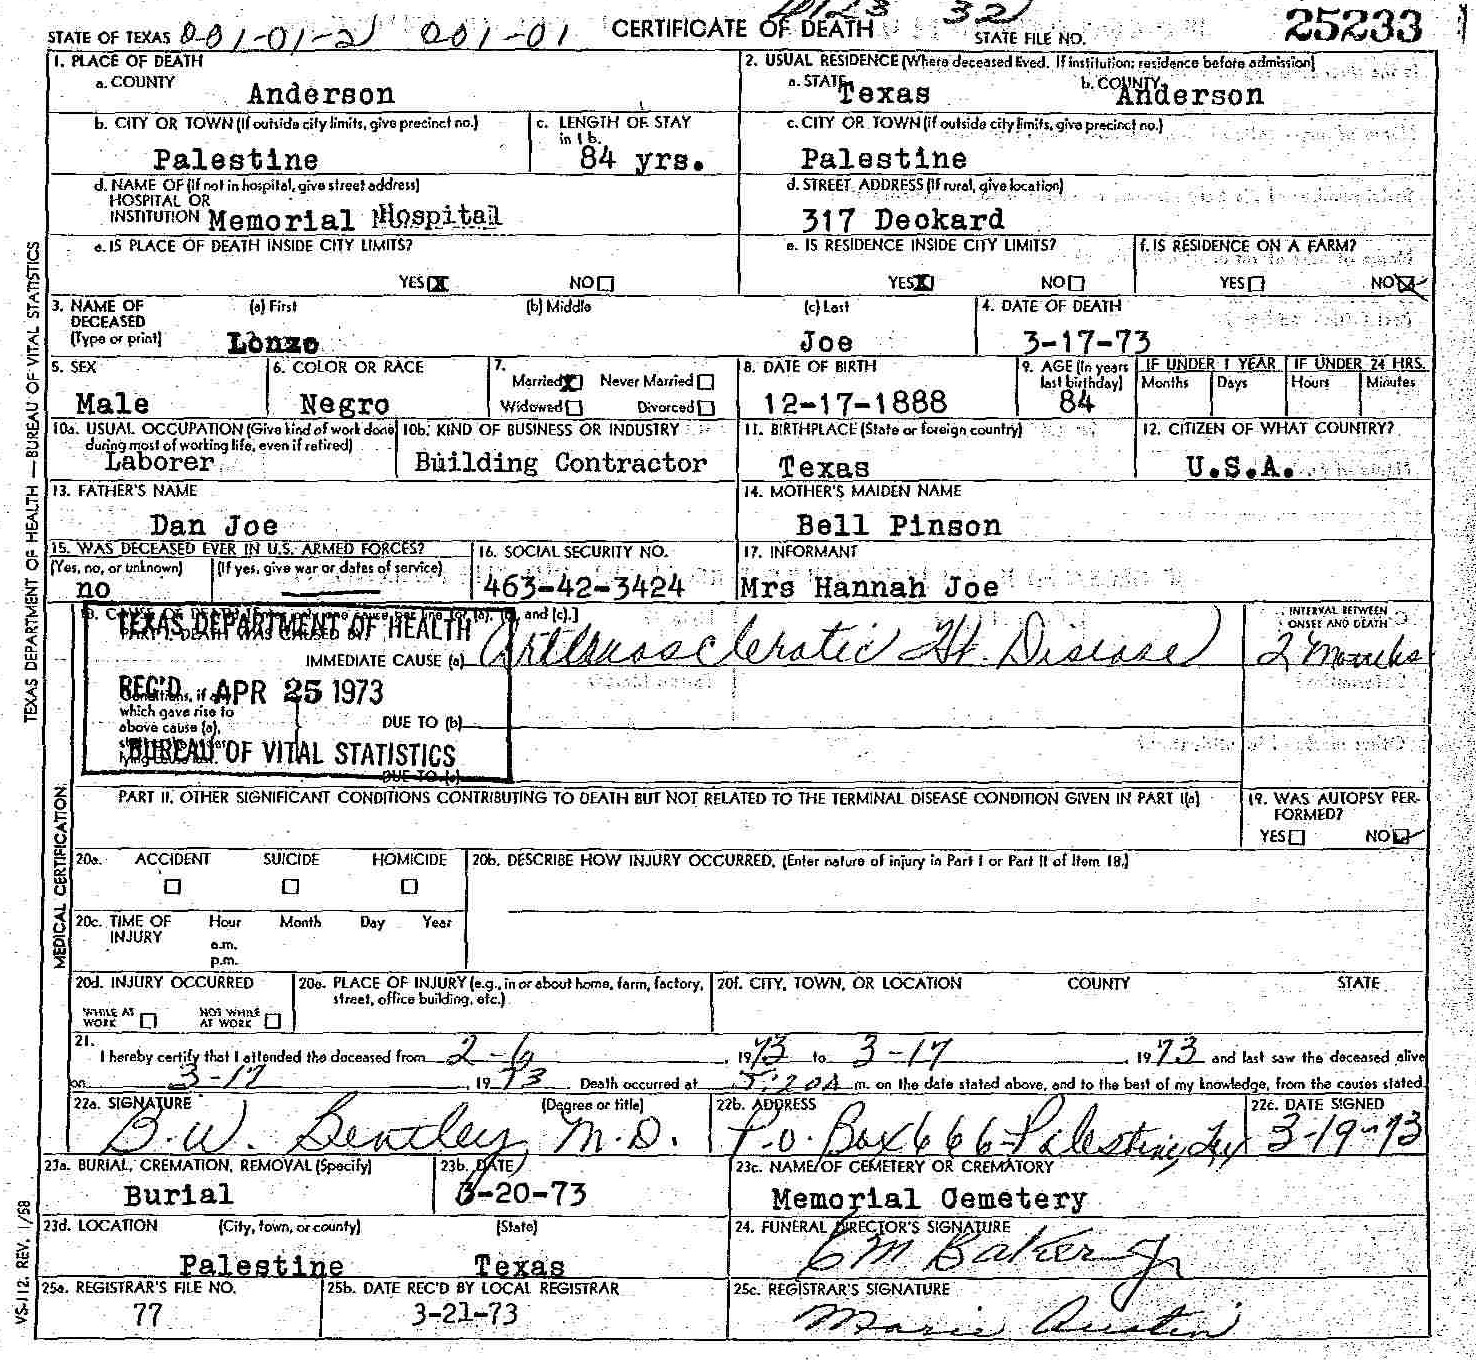 STATE OF TEXAS 001-01-2 001-01 CERTIFICATE OF DEATH STATE FILE NO. 25233
1. PLACE OF DEATH
a. COUNTY
Anderson
2. USUAL RESIDENCE (Where deceased lived. If institution: residence before admission)
a. STATE Texas b. COUNTY Anderson
b. CITY OR TOWN (If outside city limits, give precinct no.)
Palestine
c. LENGTH OF STAY in 1b.
84 yrs.
c. CITY OR TOWN (if outside city limits, give precinct no.)
Palestine
d. NAME OF (If not in hospital, give street address)
HOSPITAL OR
INSTITUTION Memorial Hospital
d. STREET ADDRESS (If rural, give location)
317 Deokard
e. IS PLACE OF DEATH INSIDE CITY LIMITS?
YES NO
e. IS RESIDENCE INSIDE CITY LIMITS?
YES NO
f. IS RESIDENCE ON A FARM?
YES NO
3. NAME OF DECEASED (Type or print)
(a) First (b) Middle (c) Last
Lonzo Joe
4. DATE OF DEATH
3-17-73
5. SEX
Male
6. COLOR OR RACE
Negro
7.
Married Never Married
Widowed Divorced
8. DATE OF BIRTH
12-17-1888
9. AGE (In years last birthday)
84
IF UNDER 1 YEAR IF UNDER 24 HRS.
Months Days Hours Minutes
10a. USUAL OCCUPATION (Give kind of work done during most of working life, even if retired)
Laborer
10b. KIND OF BUSINESS OR INDUSTRY
Building Contractor
11. BIRTHPLACE (State or foreign country)
Texas
12. CITIZEN OF WHAT COUNTRY?
U.S.A.
13. FATHER'S NAME
Dan Joe
14. MOTHER'S MAIDEN NAME
Bell Pinson
15. WAS DECEASED EVER IN U.S. ARMED FORCES?
(Yes, no, or unknown) (If yes, give war or dates of service)
no
16. SOCIAL SECURITY NO.
463-42-3424
17. INFORMANT
Mrs Hannah Joe
TEXAS DEPARTMENT OF HEALTH
REC'D APR 25 1973
BUREAU OF VITAL STATISTICS
and (c).]
IMMEDIATE CAUSE (a) Arteriosclerotic Ht. Disease
INTERVAL BETWEEN ONSET AND DEATH
2 Months
which gave rise to
above cause (a),
DUE TO (b)
DUE TO (c)
PART II. OTHER SIGNIFICANT CONDITIONS CONTRIBUTING TO DEATH BUT NOT RELATED TO THE TERMINAL DISEASE CONDITION GIVEN IN PART I(a)
19. WAS AUTOPSY PERFORMED?
YES NO
20a. ACCIDENT SUICIDE HOMICIDE
20b. DESCRIBE HOW INJURY OCCURRED. (Enter nature of injury in Part I or Part II of Item 18.)
20c. TIME OF INJURY Hour Month Day Year
a.m.
p.m.
20d. INJURY OCCURRED
WHILE AT WORK NOT WHILE AT WORK
20e. PLACE OF INJURY (e.g., in or about home, farm, factory, street, office building, etc.)
20f. CITY, TOWN, OR LOCATION COUNTY STATE
21.
I hereby certify that I attended the deceased from 2-6, 1973 to 3-17, 1973 and last saw the deceased alive
on 3-17, 1973. Death occurred at 5:20A m. on the date stated above, and to the best of my knowledge, from the causes stated.
22a. SIGNATURE (Degree or title)
B.W. Bentley, M.D.
22b. ADDRESS
P.O. Box 666 Palestine, Tex
22c. DATE SIGNED
3-19-73
23a. BURIAL, CREMATION, REMOVAL (Specify)
Burial
23b. DATE
3-20-73
23c. NAME OF CEMETERY OR CREMATORY
Memorial Cemetery
23d. LOCATION (City, town, or county) (State)
Palestine Texas
24. FUNERAL DIRECTOR'S SIGNATURE
C M Baker Jr
25a. REGISTRAR'S FILE NO.
77
25b. DATE REC'D BY LOCAL REGISTRAR
3-21-73
25c. REGISTRAR'S SIGNATURE
Marie Austin
TEXAS DEPARTMENT OF HEALTH — BUREAU OF VITAL STATISTICS
MEDICAL CERTIFICATION
VS-112. REV. 1/58